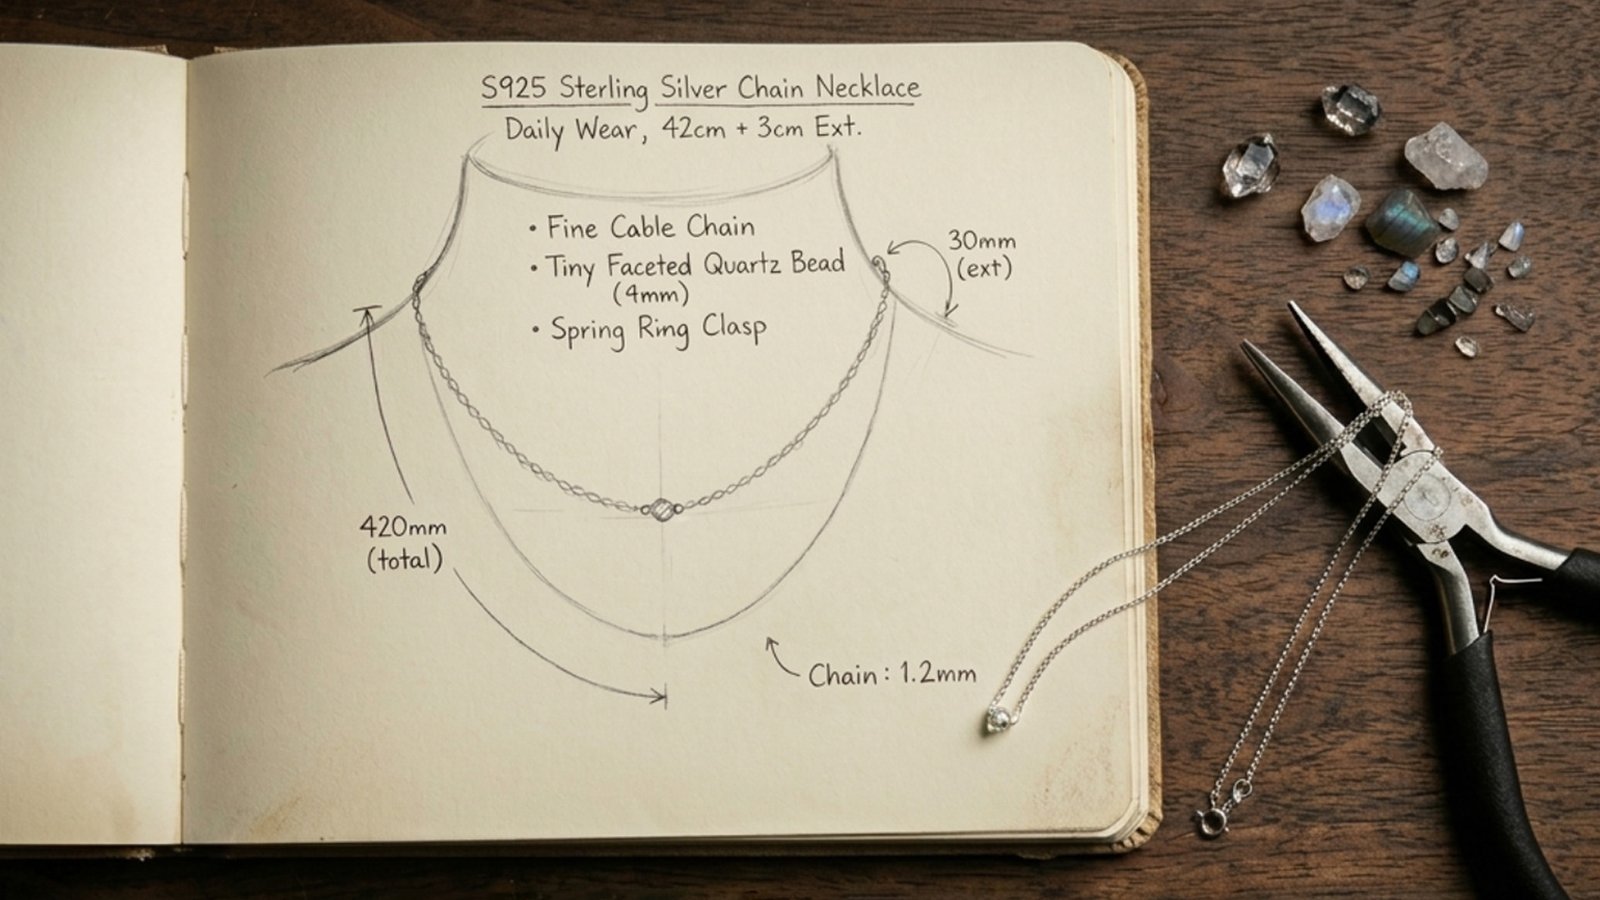 S925 Sterling Silver Chain Necklace
Daily Wear, 42cm + 3cm Ext.
• Fine Cable Chain
• Tiny Faceted Quartz Bead
(4mm)
• Spring Ring Clasp
30mm
(ext)
420mm
(total)
Chain: 1.2mm